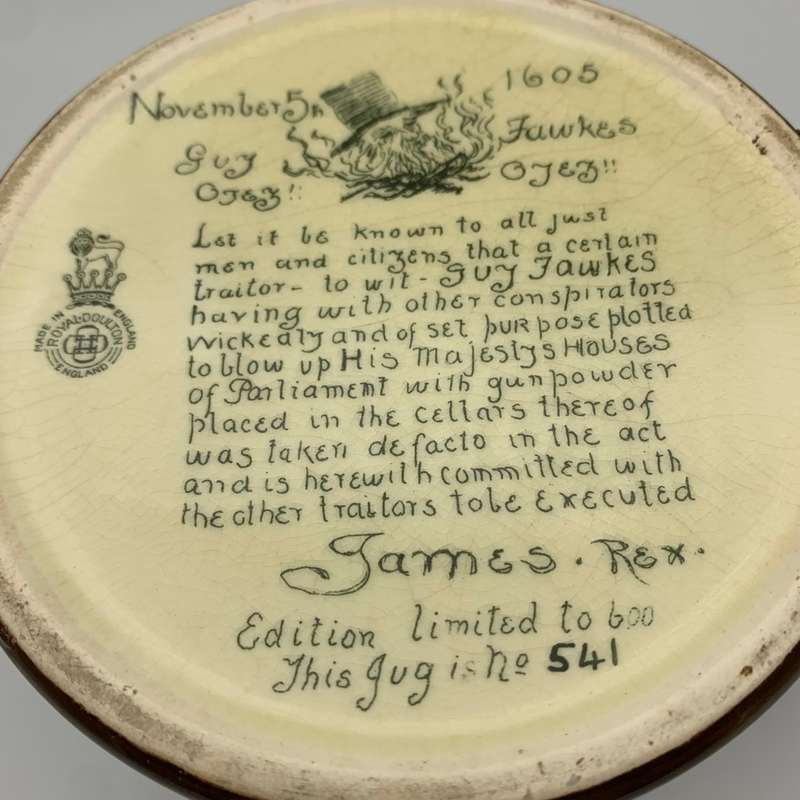 November 5th 1605
Guy Fawkes
OJEZ!! OJEZ!!
Let it be known to all just
men and citizens that a certain
traitor - to wit - Guy Fawkes
having with other conspirators
wickedly and of set purpose plotted
to blow up His Majestys Houses
of Parliament with gunpowder
placed in the cellars thereof
was taken de facto in the act
and is herewith committed with
the other traitors to be executed
James. Rex.
Edition limited to 600
This Jug is No 541
MADE IN ENGLAND
ROYAL DOULTON
ENGLAND